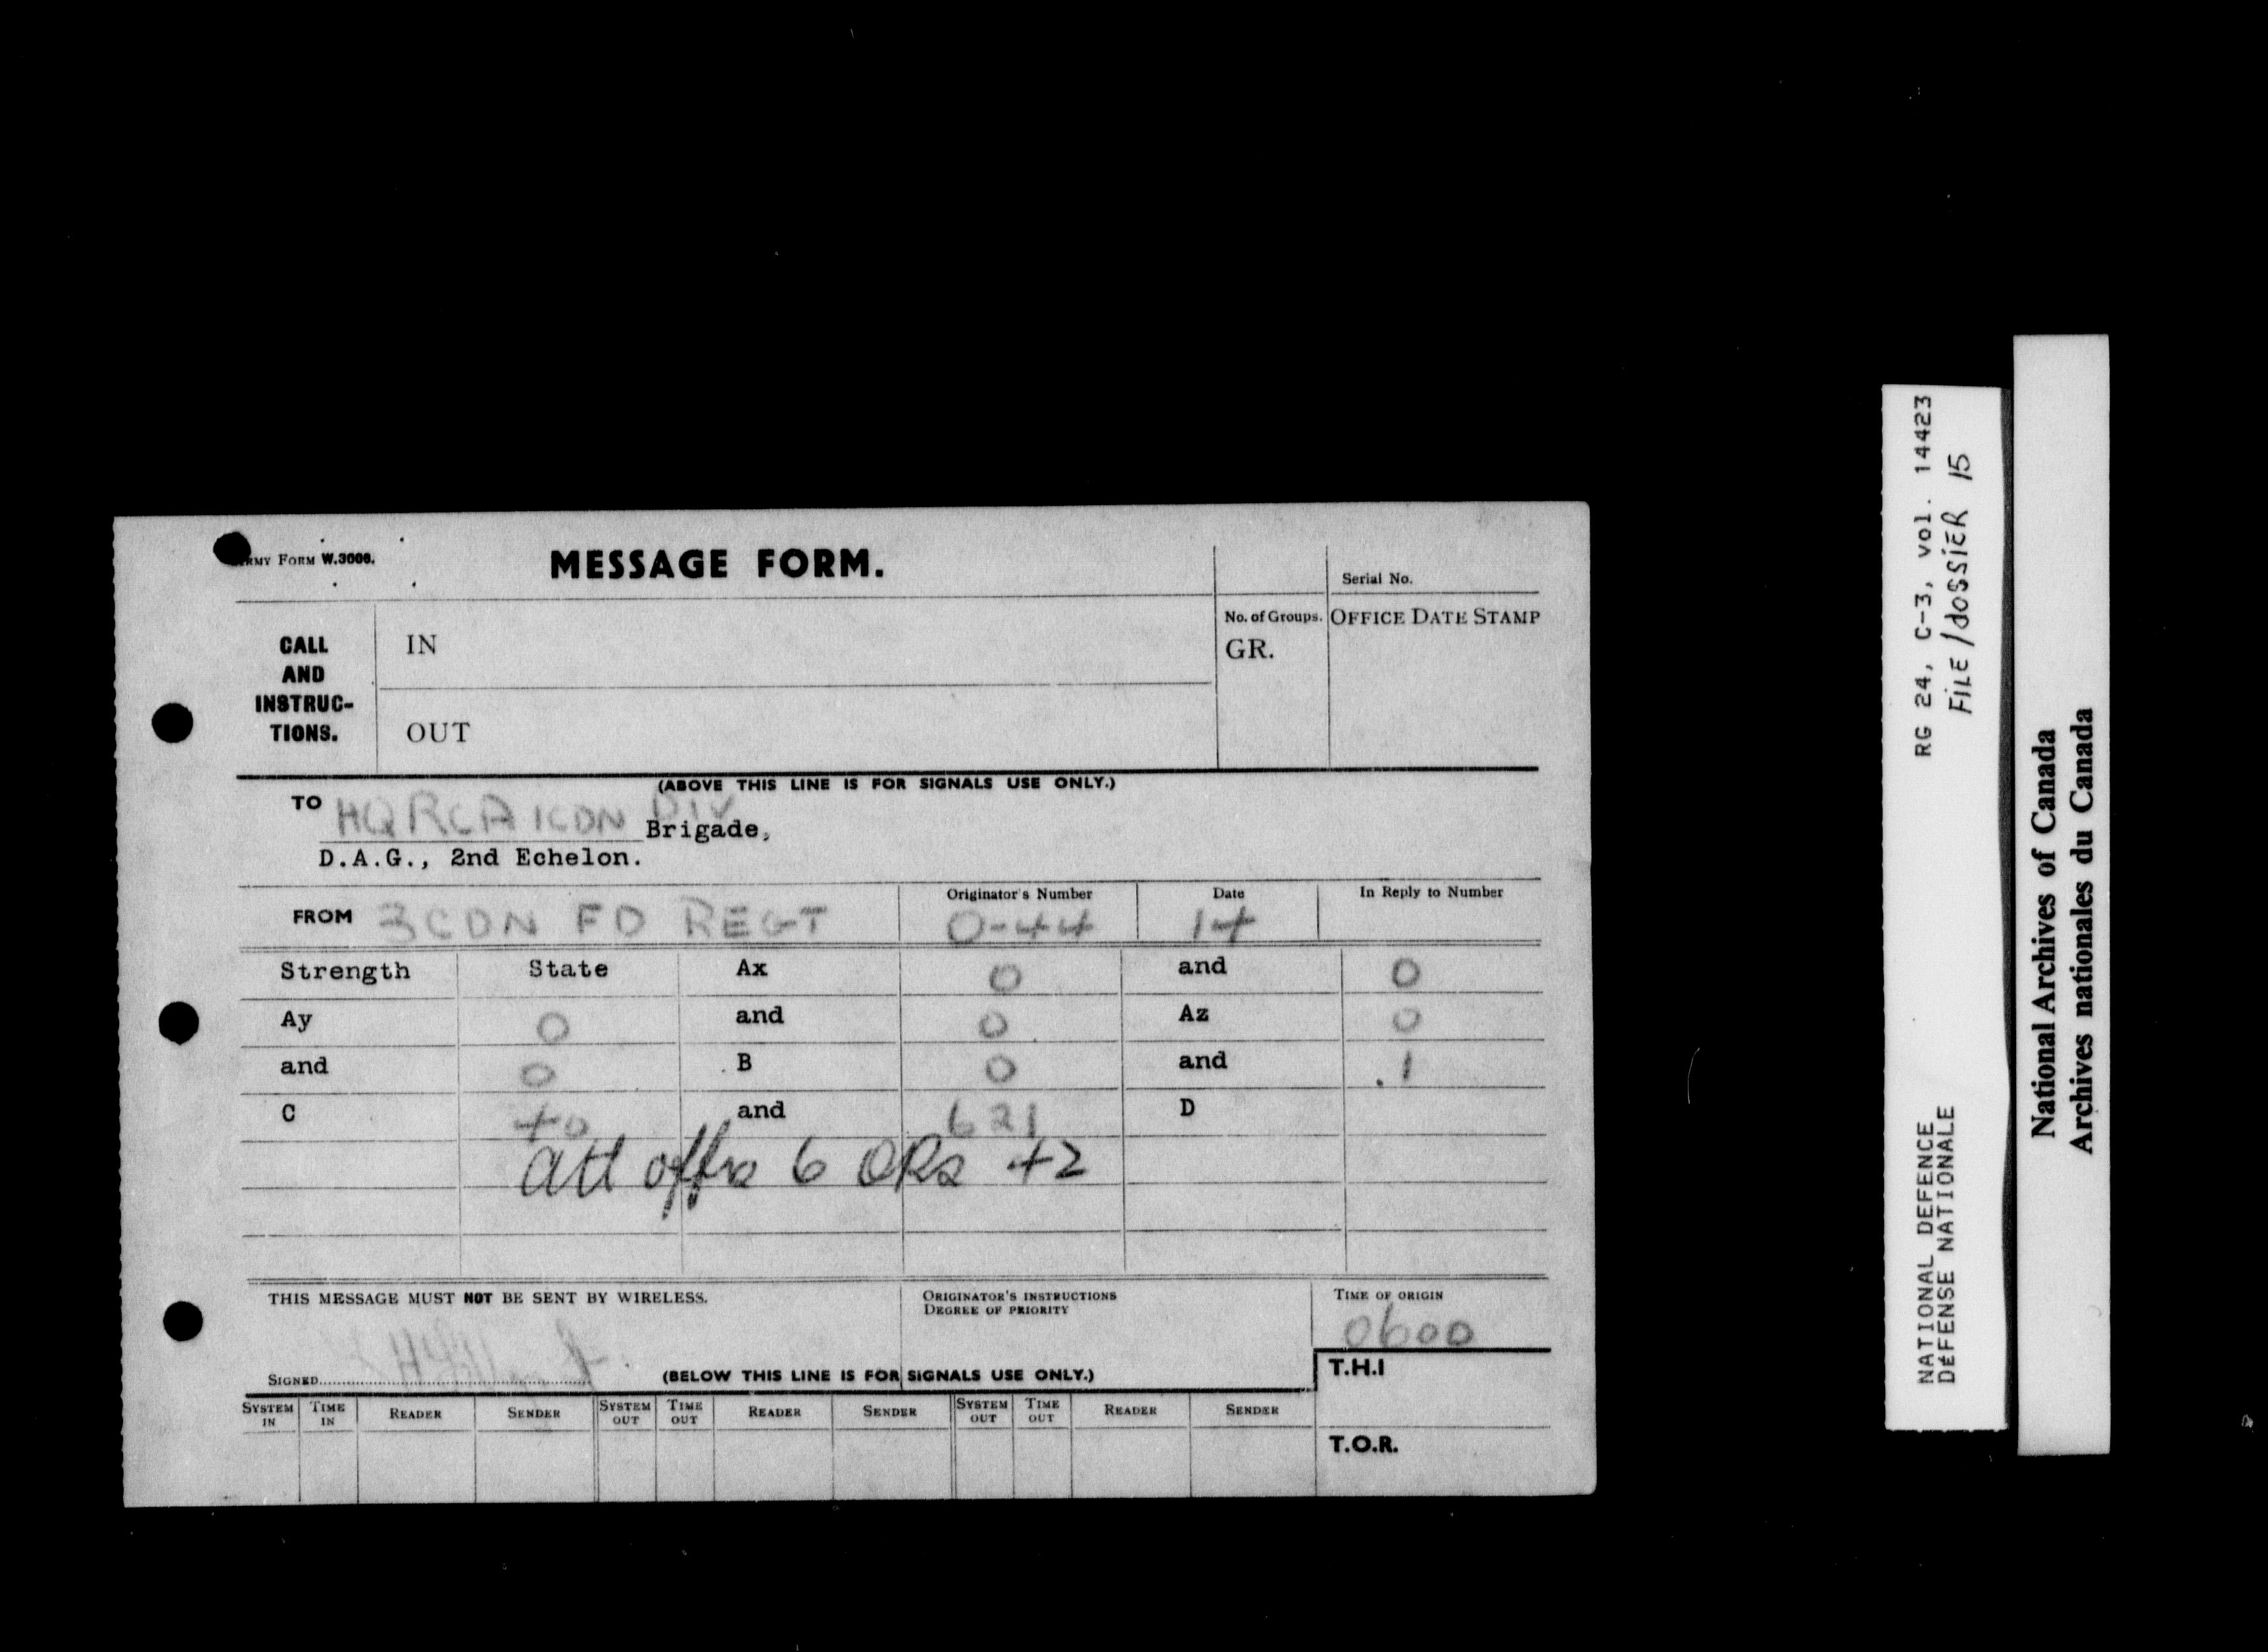 ARMY FORM W.3006.
MESSAGE FORM.
Serial No.
CALL AND INSTRUC- TIONS.
IN
No. of Groups.
GR.
OFFICE DATE STAMP
OUT
(ABOVE THIS LINE IS FOR SIGNALS USE ONLY.)
TO HQ RCA 1 CDN DIV
Brigade,
D.A.G., 2nd Echelon.
FROM 3 CDN FD REGT
Originator's Number
O-44
Date
14
In Reply to Number
Strength State Ax 0 and 0
Ay 0 and 0 Az 0
and 0 B 0 and 1
C 40 and 621 D
att offrs 6 ORs 42
THIS MESSAGE MUST NOT BE SENT BY WIRELESS.
ORIGINATOR'S INSTRUCTIONS
DEGREE OF PRIORITY
TIME OF ORIGIN
0600
SIGNED
(BELOW THIS LINE IS FOR SIGNALS USE ONLY.)
T.H.I
SYSTEM IN TIME IN READER SENDER SYSTEM OUT TIME OUT READER SENDER SYSTEM OUT TIME OUT READER SENDER
T.O.R.
NATIONAL DEFENCE RG 24, C-3, vol. 14423
DÉFENSE NATIONALE FILE/dOSSIER 15
National Archives of Canada
Archives nationales du Canada